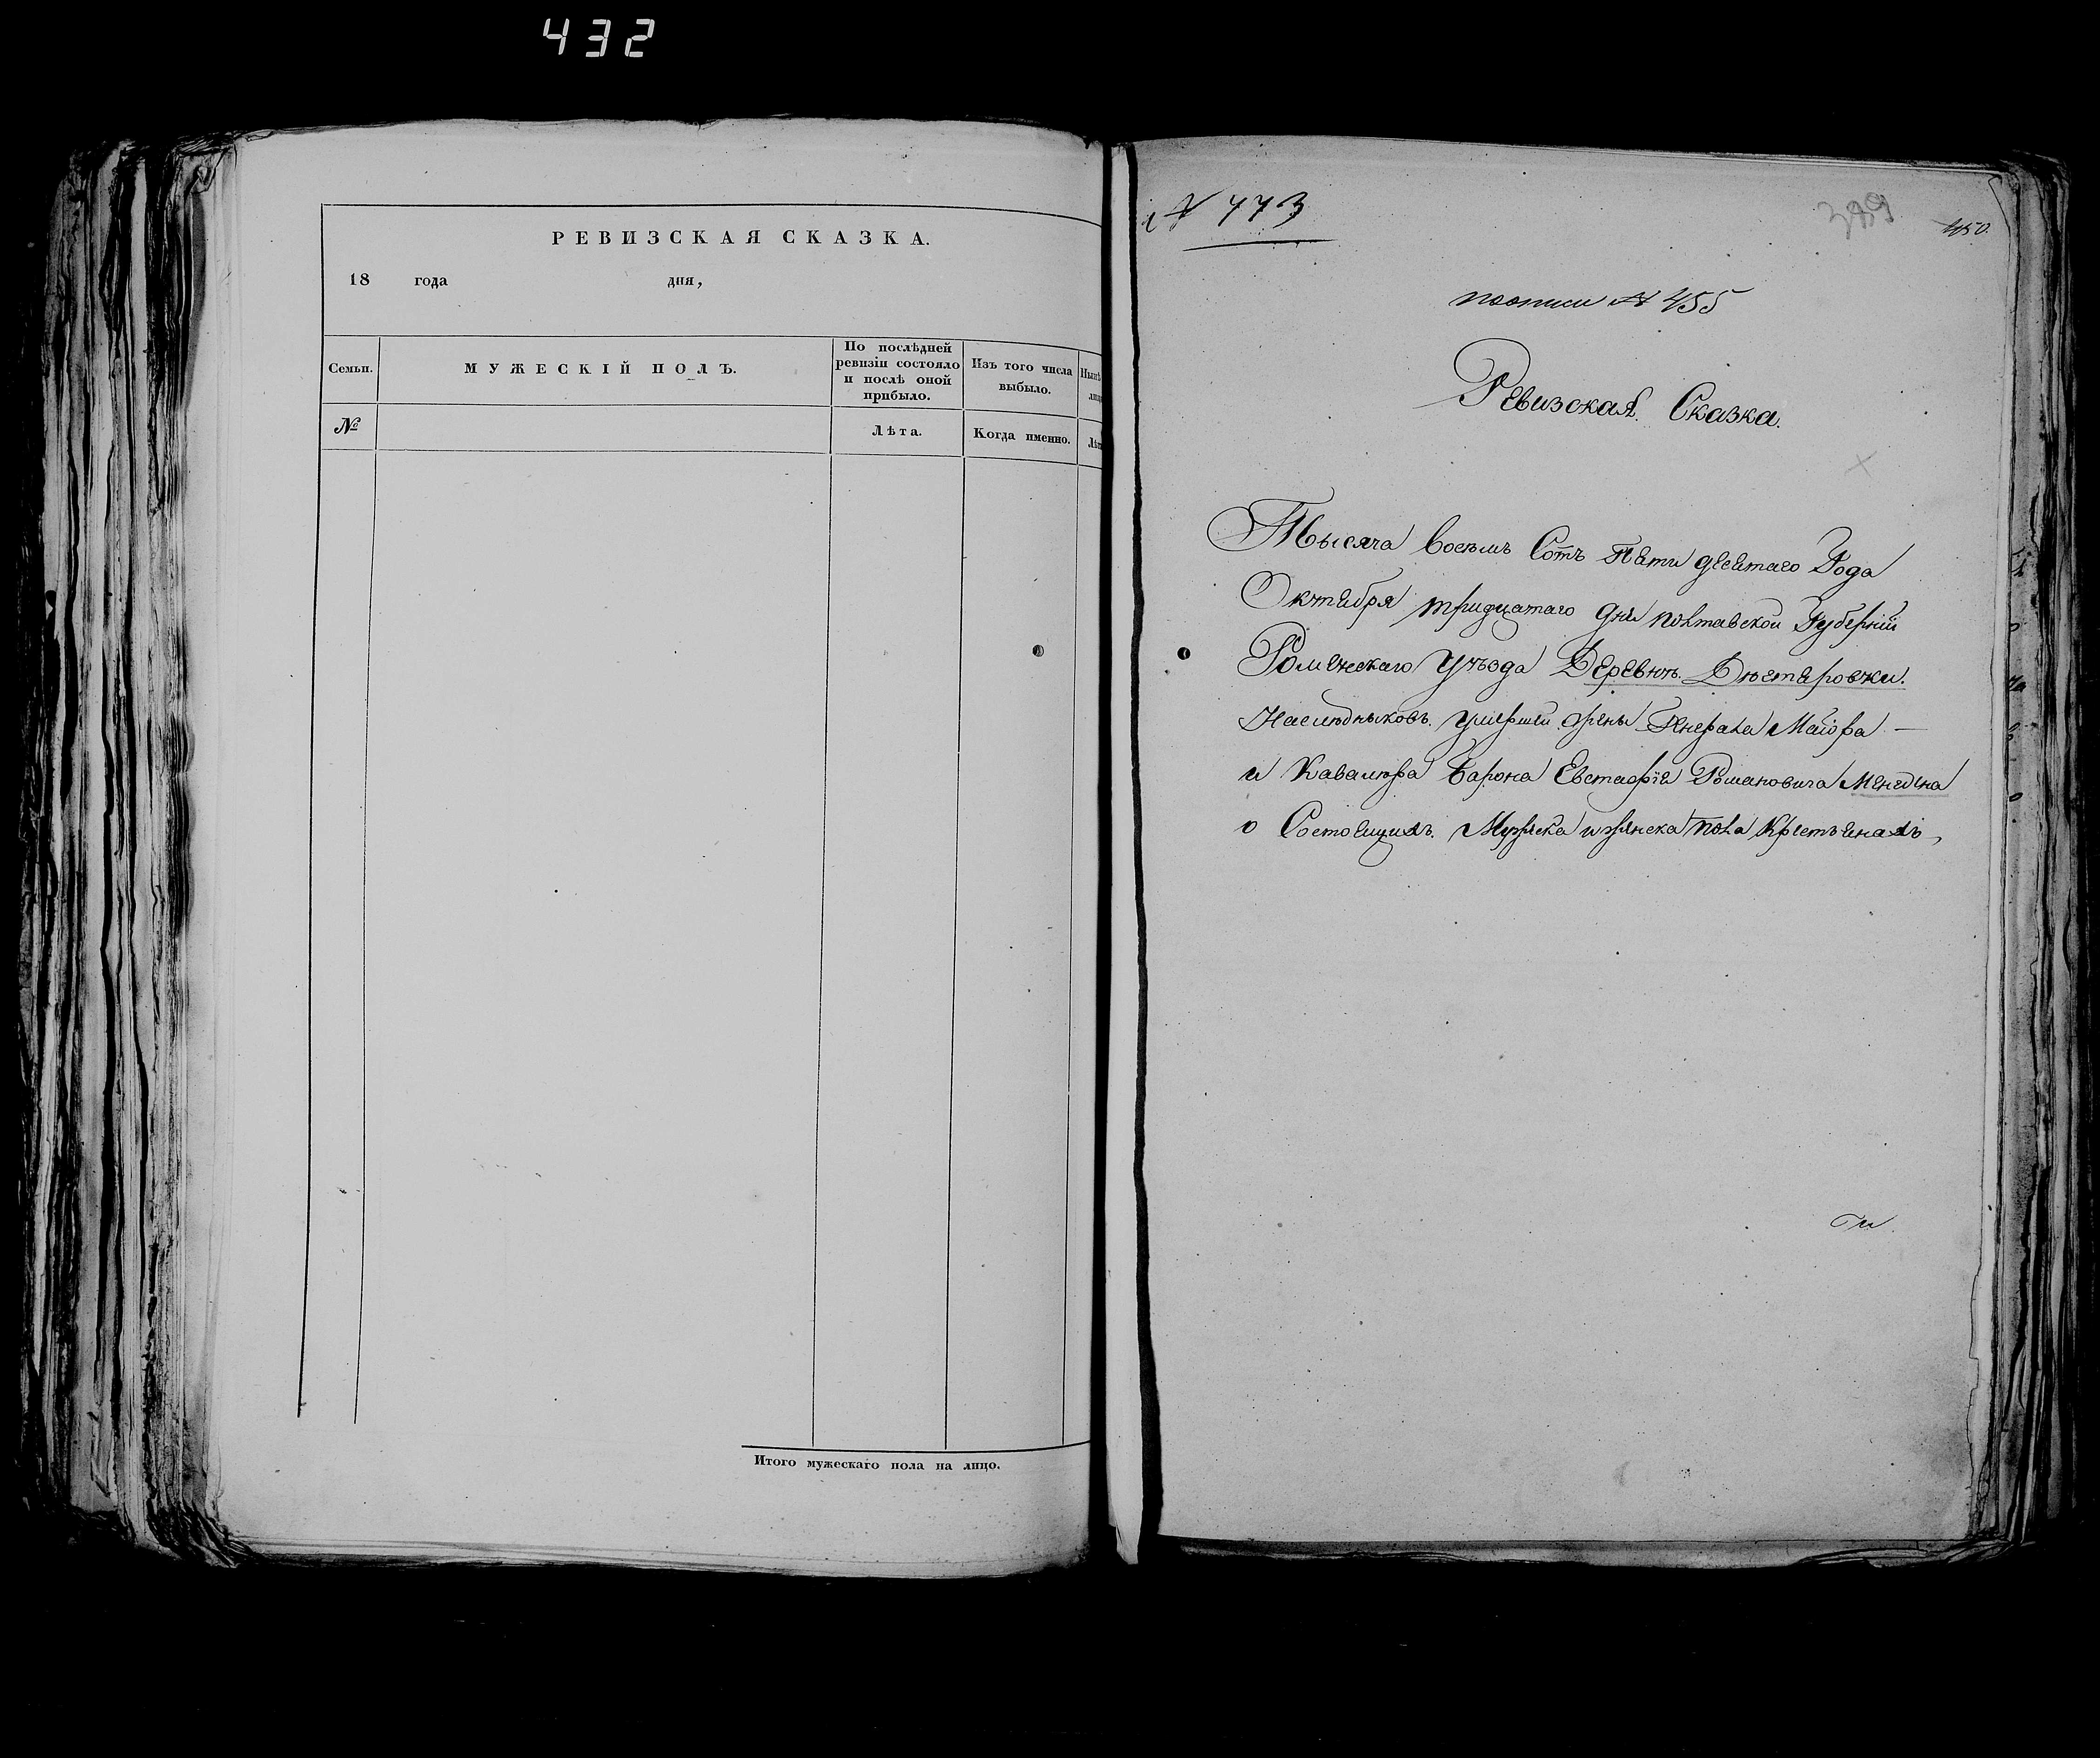 432
РЕВИЗСКАЯ СКАЗКА.
18 года дня,
Семьи.
МУЖЕСКІЙ ПОЛЪ.
По послѣдней ревизіи состояло и послѣ оной прибыло.
Изъ того числа выбыло.
№
Лѣта.
Когда именно.
Итого мужескаго пола на лицо.
№ 473
389
450
пописи № 455
Ревизская Сказка.
Тысяча восемь Сотъ Пяти десятаго Года
Октября тридцатаго дня полтавской Губерніи
Роменскаго Уѣзда Деревнѣ
Наслѣдныковъ умершей жены Генерала Маіора —
и Кавалера Барона Евстафія Романовича
о Состоящихъ Мужеска и женска пола Крестьянахъ,